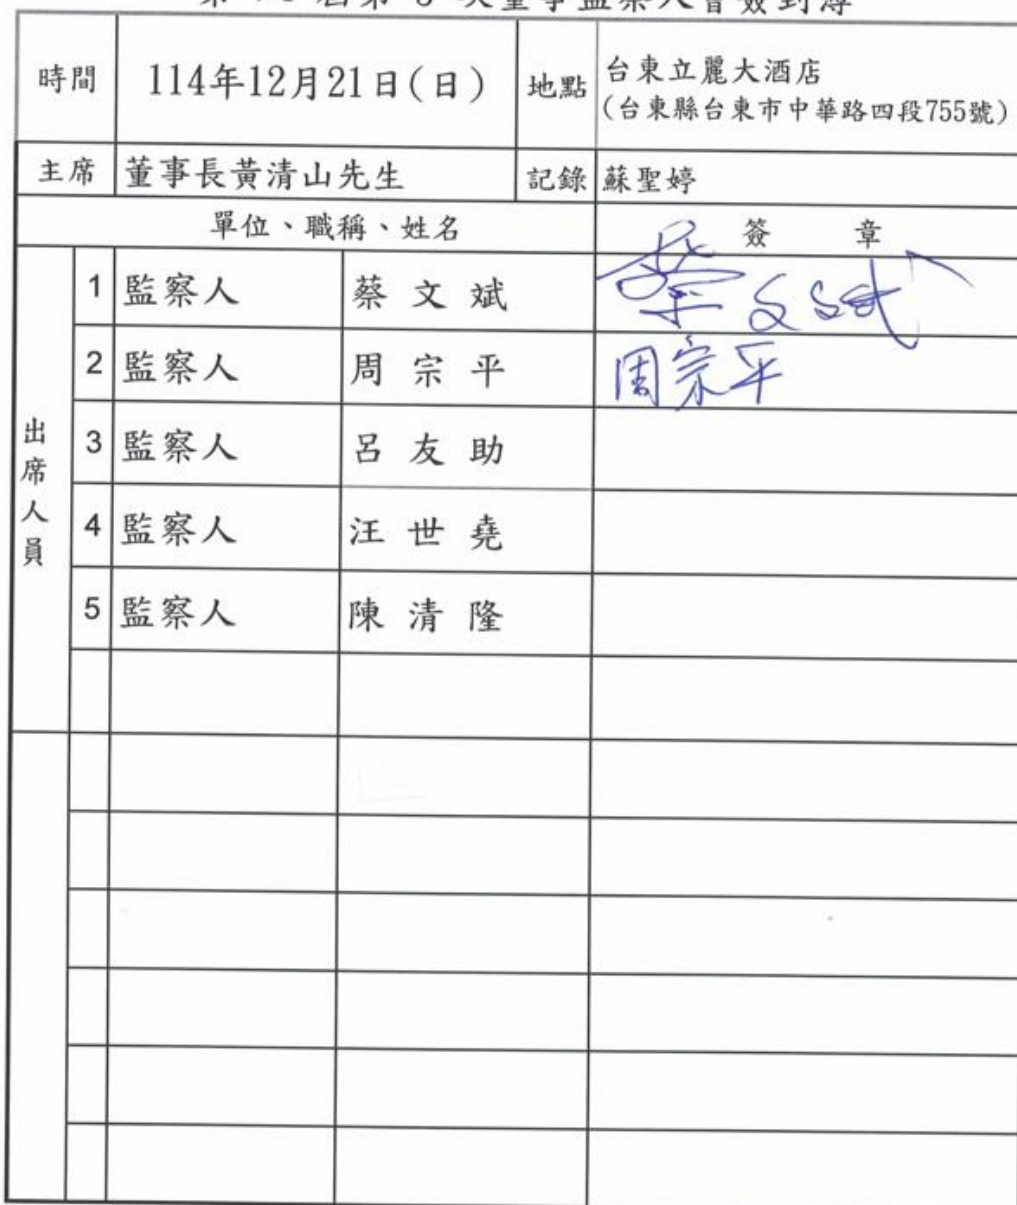 次董事監察人會簽到簿
時間 114年12月21日(日) 地點 台東立麗大酒店
(台東縣台東市中華路四段755號)
主席 董事長黃清山先生 記錄 蘇聖婷
單位、職稱、姓名 簽章
出席人員
1 監察人 蔡文斌 蔡文斌
2 監察人 周宗平 周宗平
3 監察人 呂友助
4 監察人 汪世堯
5 監察人 陳清隆